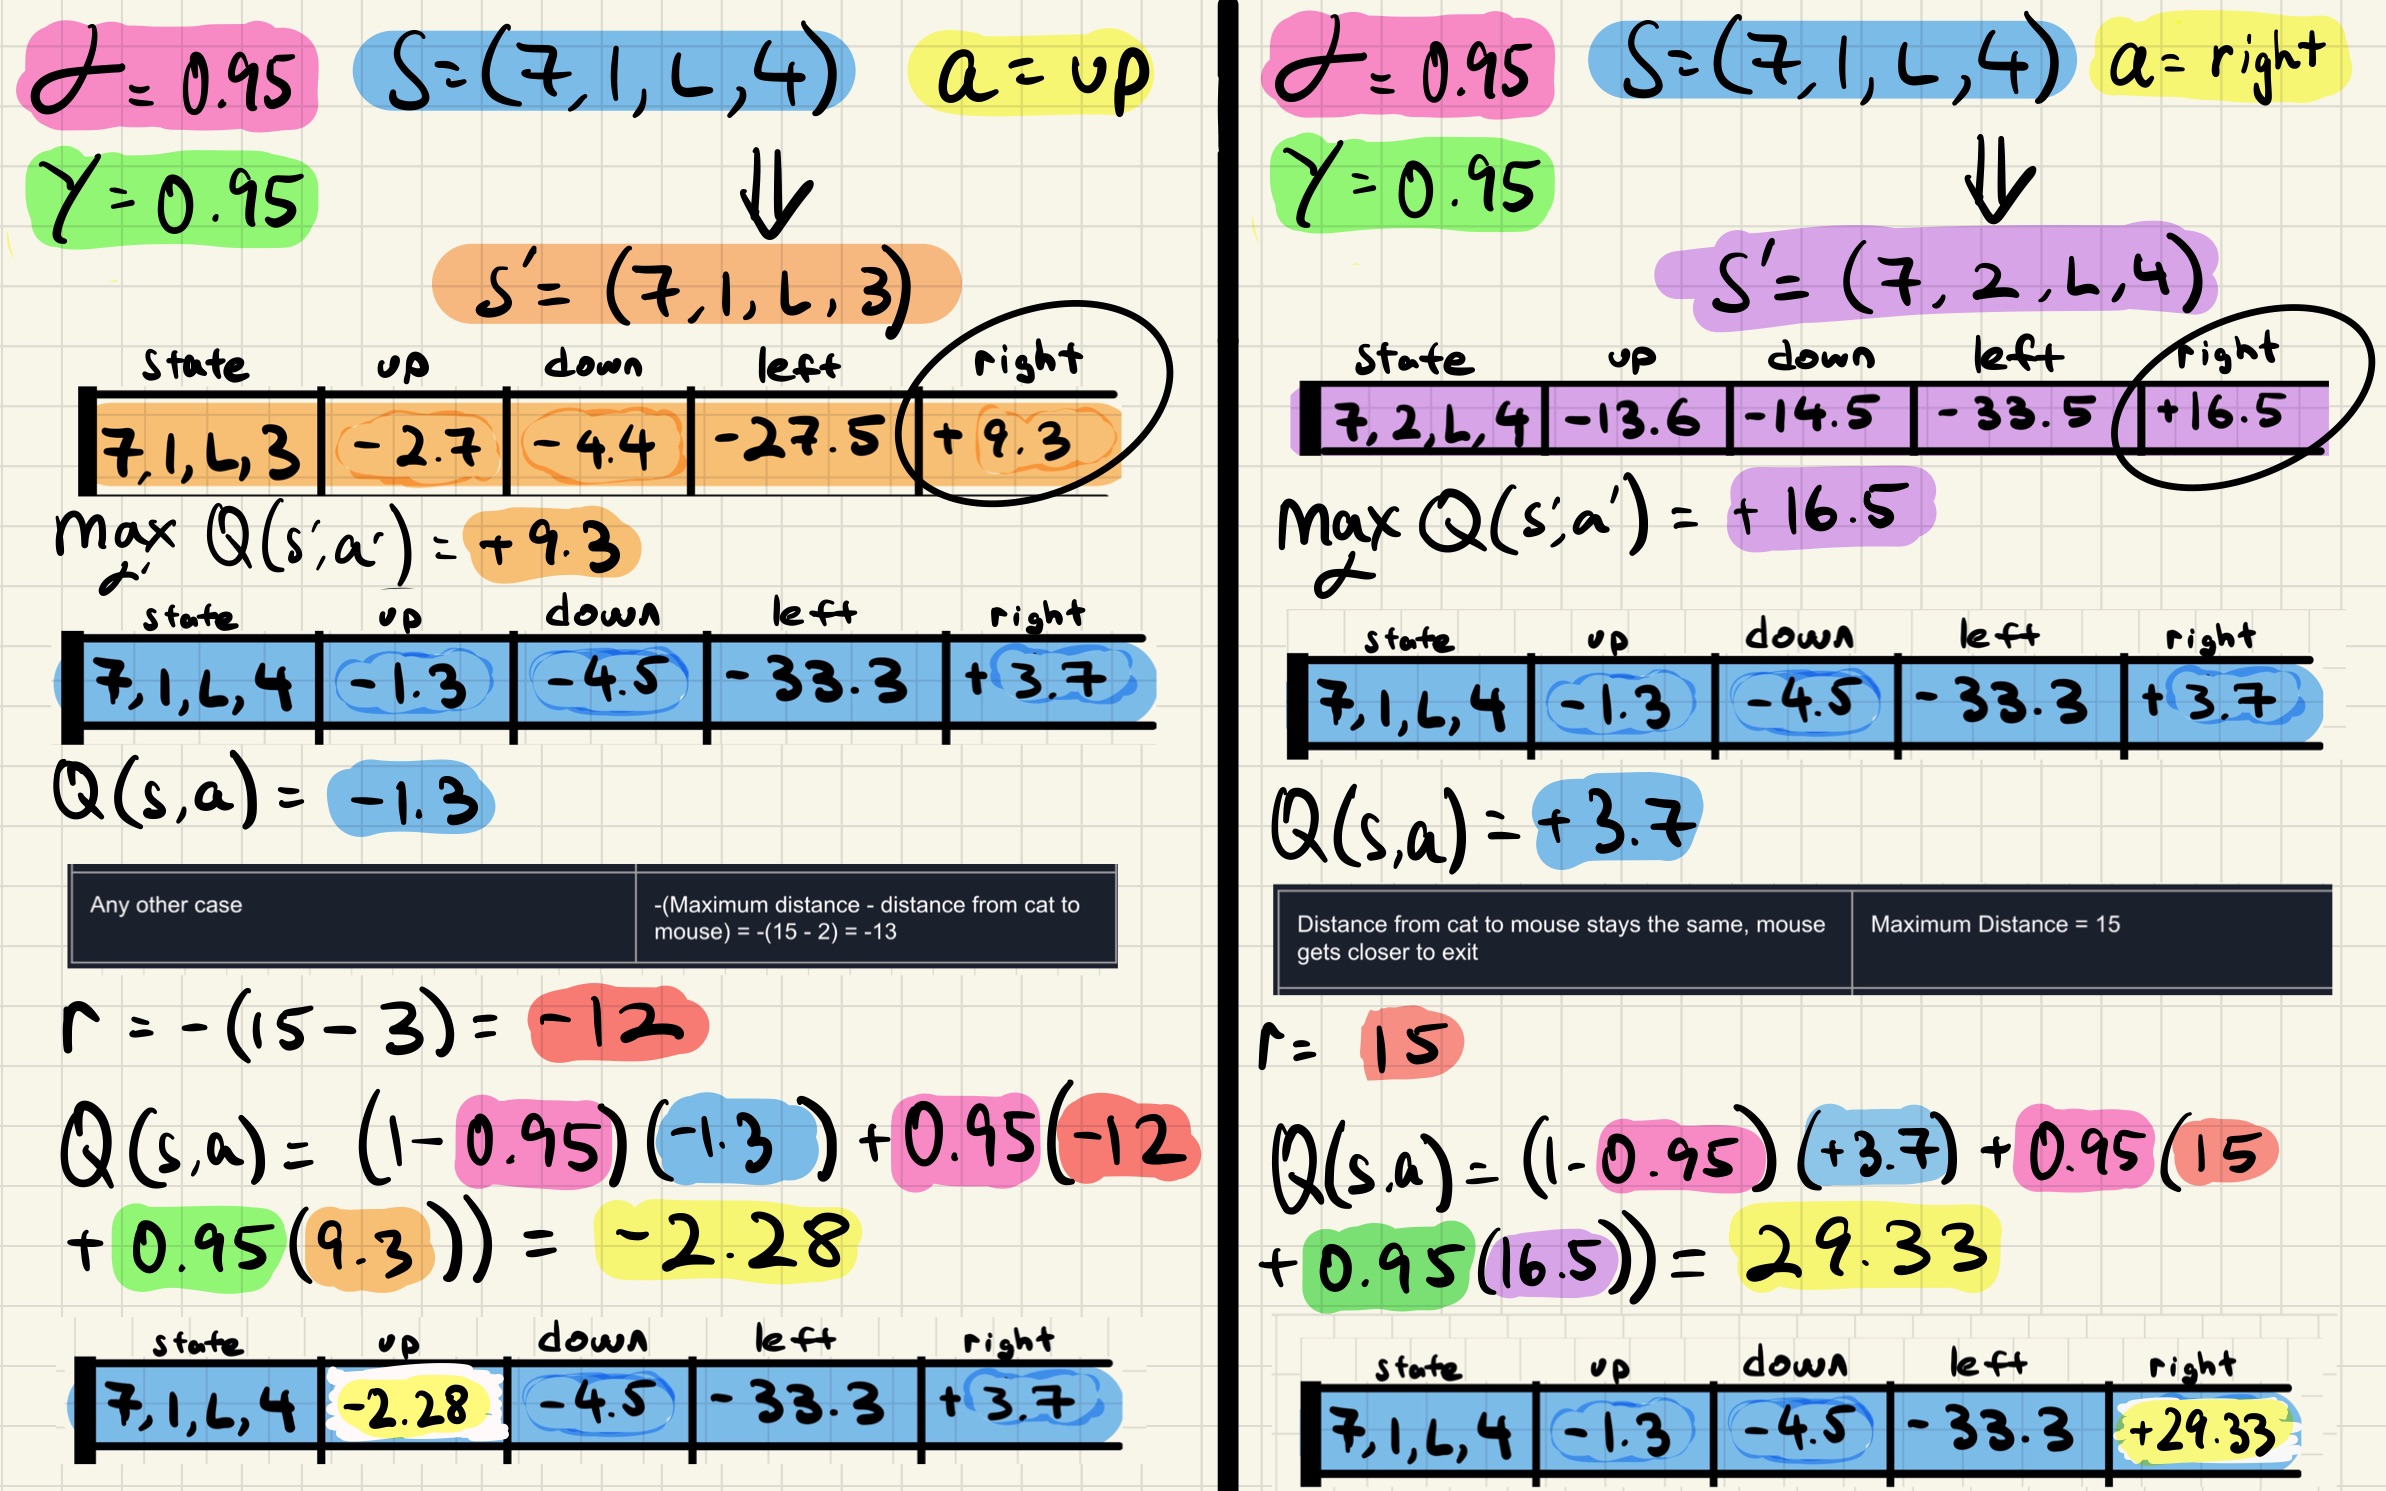 α = 0.95 S=(7,1,L,4) a = up
γ = 0.95
s' = (7,1,L,3)
state up down left right
7,1,L,3 -2.7 -4.4 -27.5 +9.3
max Q(s',a') = +9.3
α'
state up down left right
7,1,L,4 -1.3 -4.5 -33.3 +3.7
Q(s,a) = -1.3
Any other case
-(Maximum distance - distance from cat to
mouse) = -(15 - 2) = -13
r = -(15-3) = -12
Q(s,a) = (1-0.95)(-1.3) + 0.95(-12
+ 0.95(9.3)) = -2.28
state up down left right
7,1,L,4 -2.28 -4.5 -33.3 +3.7
α = 0.95 S=(7,1,L,4) a = right
γ = 0.95
S' = (7,2,L,4)
state up down left right
7,2,L,4 -13.6 -14.5 -33.5 +16.5
max Q(s',a') = +16.5
α
state up down left right
7,1,L,4 -1.3 -4.5 -33.3 +3.7
Q(s,a) = +3.7
Distance from cat to mouse stays the same, mouse
gets closer to exit
Maximum Distance = 15
r = 15
Q(s,a) = (1-0.95)(+3.7) + 0.95(15
+ 0.95(16.5)) = 29.33
state up down left right
7,1,L,4 -1.3 -4.5 -33.3 +29.33